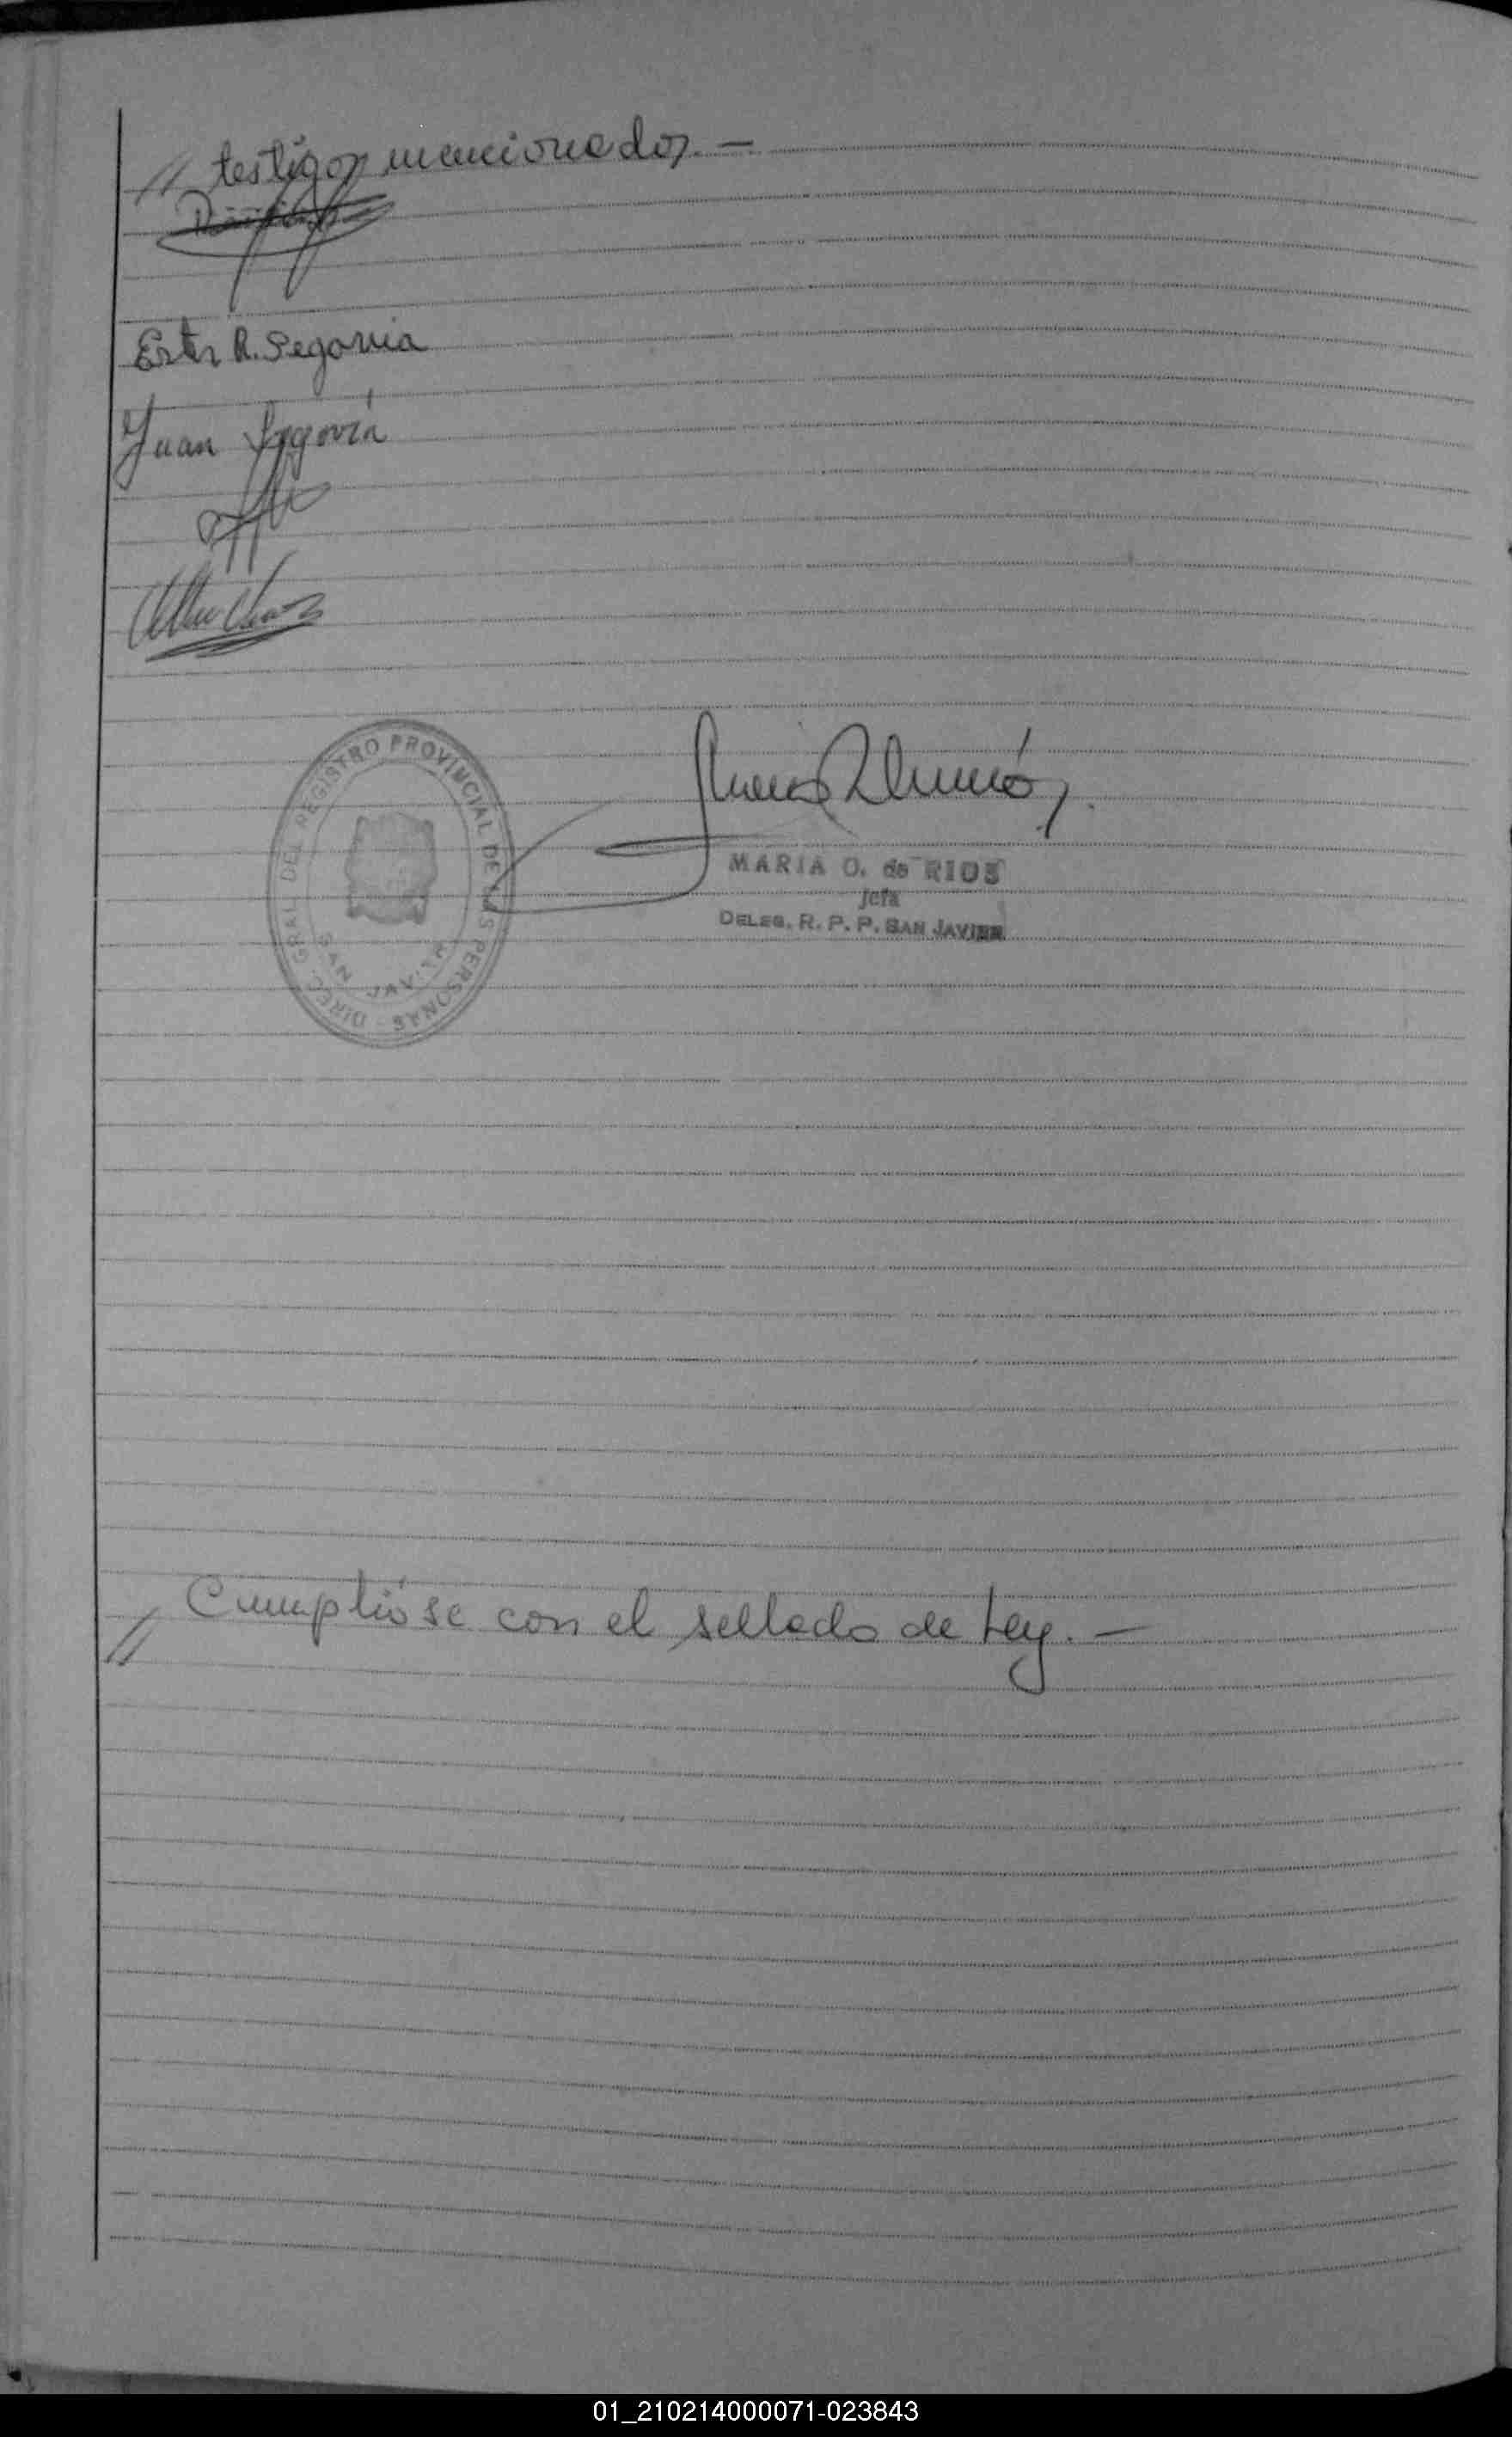 // testigos mencionados. —
Ester R. Segovia
Juan Segovia
DIREC. GRAL. DEL REGISTRO PROVINCIAL DE LAS PERSONAS
SAN JAVIER
MARIA O. de RIOS
Jefa
DELEG. R. P. P. SAN JAVIER
// Cumplióse con el sellado de Ley. —
01_210214000071-023843